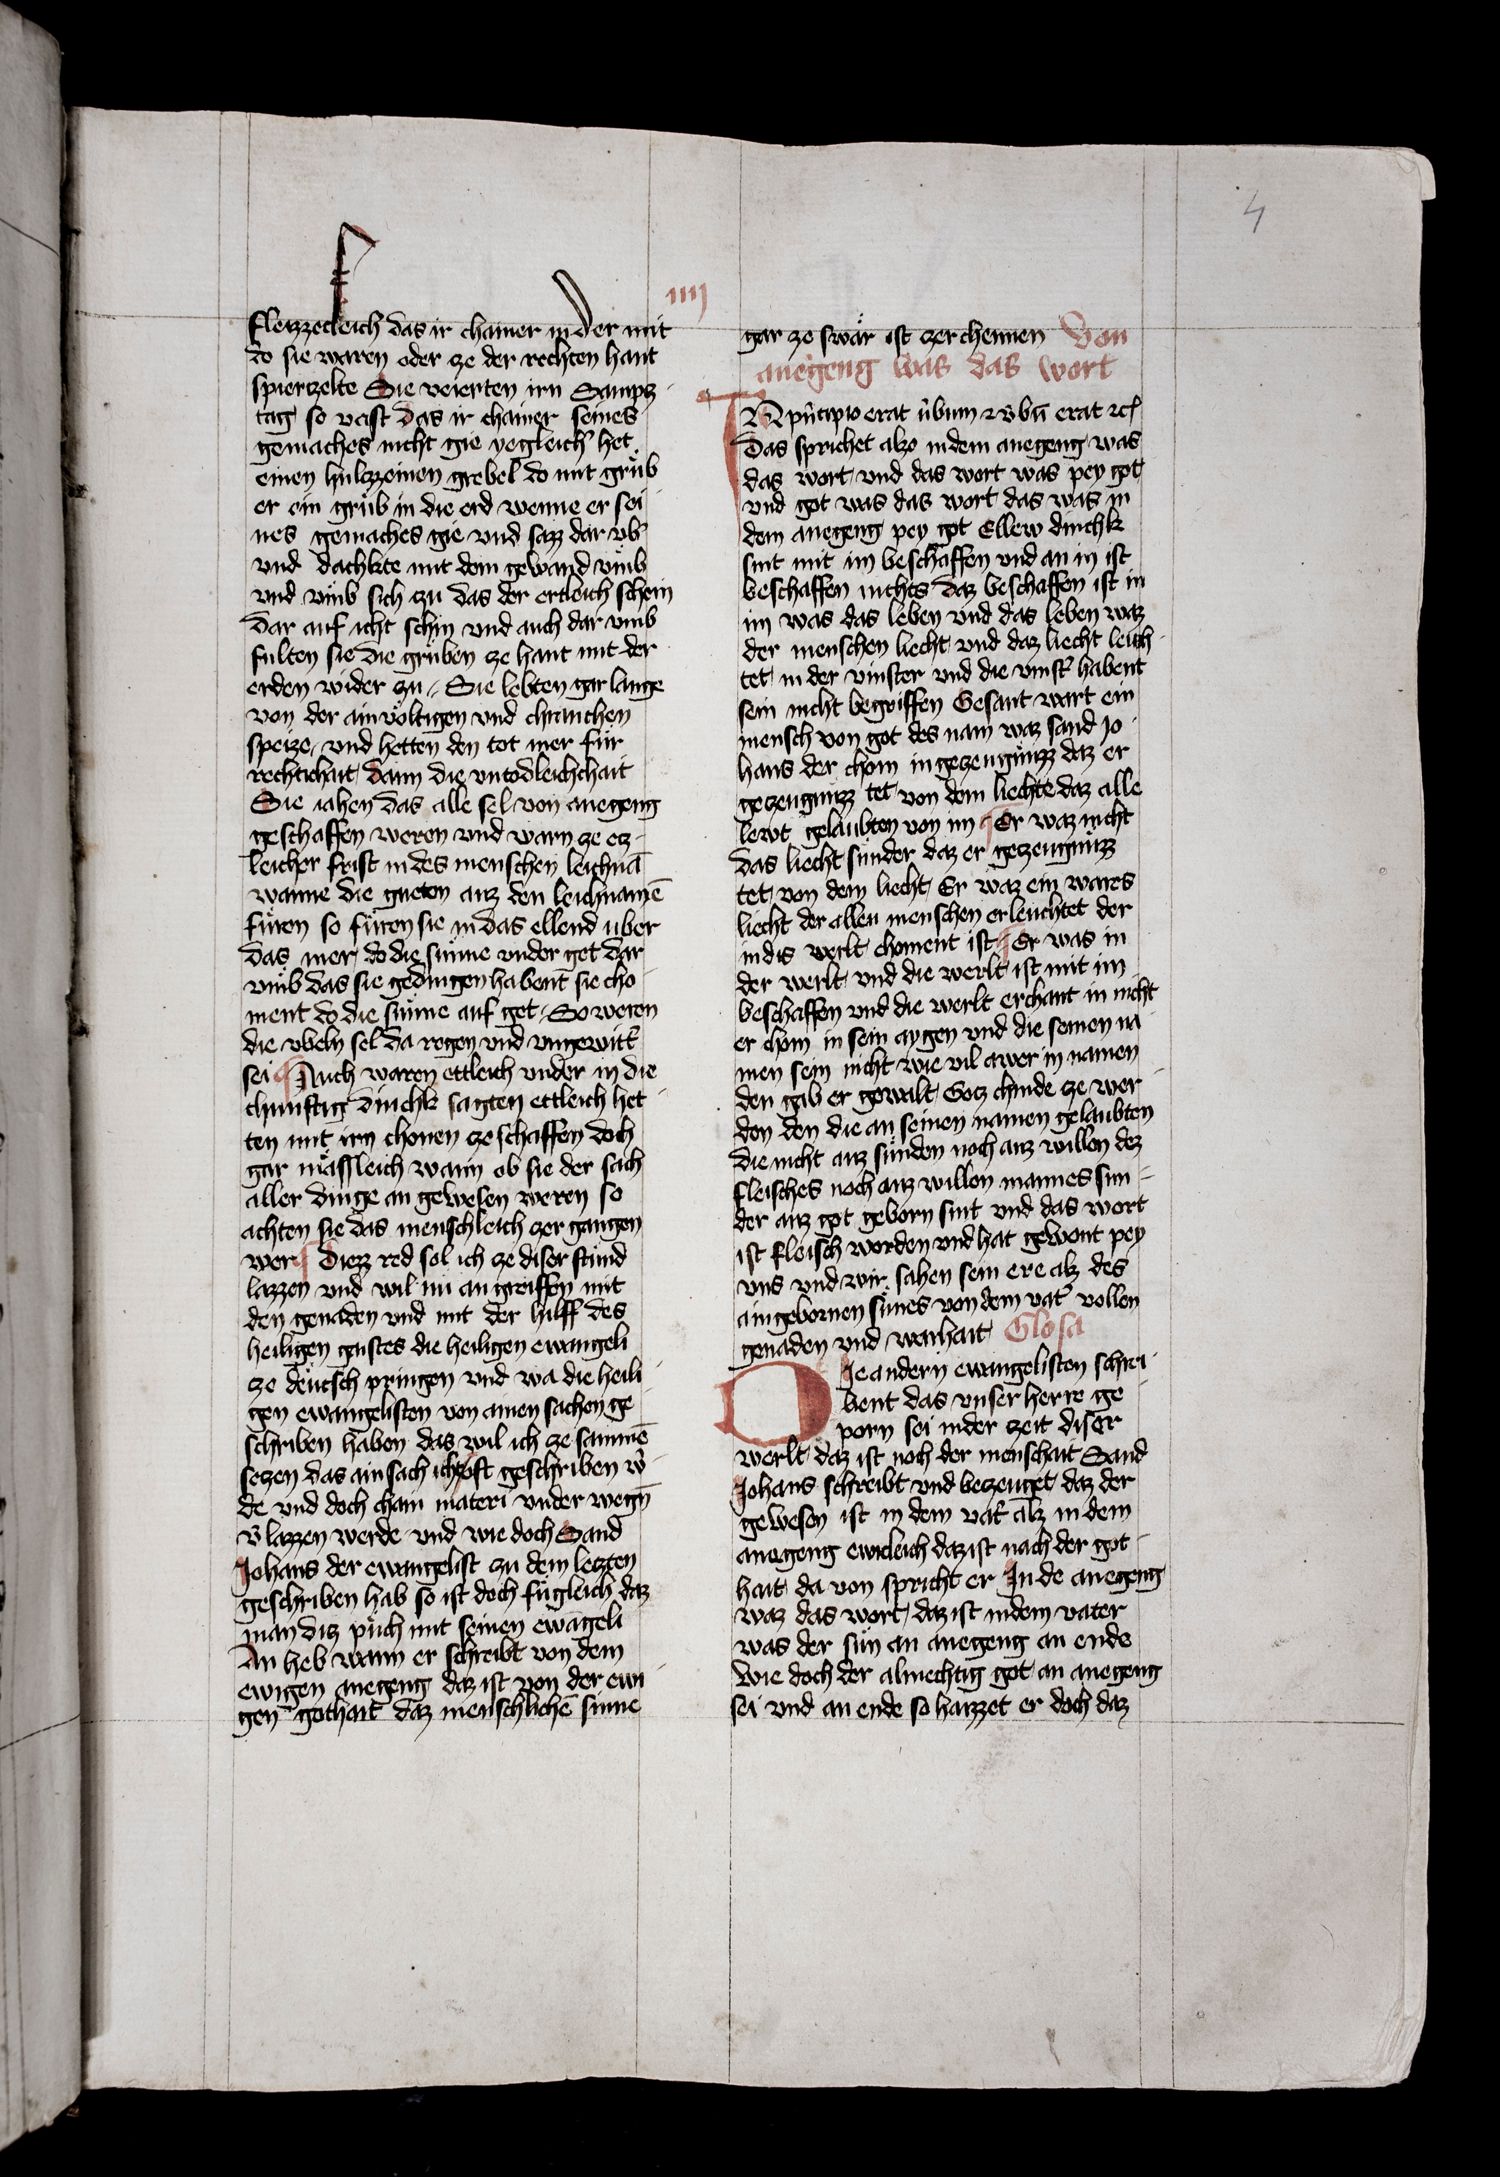 4
iiij
fleizzecleich das ir chainer in der mit
do sie waren oder ze der rechten hant
spierczelte Sie veierten irn Sampz
tag so vast das ir chainer seines
gemaches nicht gie yegleich het
einen hulzzeinen grebel do mit grub
er ein grub in die erd wenne er sei
nes gemaches gie vnd sazz dar vb͛
vnd dachkte mit dem gewand vmb
vnd vmb sich zu das der ertleich schein
dar auf icht schin vnd auch dar vmb
fulten sie die gruben ze hant mit der
erden wider zu Sie lebten gar lange
von der ainvoltigen vnd chranchen
speize vnd hetten den tot mer für
rechtichait dann die vntodleichchait
Sie iahen das alle sel von anegeng
geschaffen weren vnd warn ze ecz
leicher frist in des menschen leichnā
wanne die gueten auz den leichnamē
füren so füren sie in das ellend uber
das mer do die sunne vnder get dar
vmb das sie gedingen habent sie cho
ment do die sunne auf get So weren
die vbeln sel da regen vnd vngewitt͛
sei Auch waren ettleich vnder in die
chunftig dinchk sagten ettleich het
ten mit irn chonen ze schaffen doch
gar mässleich wann ob sie der sach
aller dinge an gewesen weren so
achten sie das menschleich zer gangen
wer Diezz red sol ich ze diser stund
lazzen vnd wil nu an greiffen mit
den genaden vnd mit der hilff des
heiligen gaistes die heiligen ewangeli
ze deutsch pringen vnd wa die heili
gen ewangelisten von ainen sachen ge
schriben haben das wil ich ze sammē
seczen das ain sach icht oft geschriben w͛
de vnd doch chain materi vnder wegn̄
v͛lazzen werde vnd wie doch Sand
Johans der ewangelist zu dem leczten
geschriben hab so ist doch fügleich daz
man diz püch mit seinen ewāgeli
An heb wann er schreibt von dem
ewigen anegeng daz ist von der ewi
gen gothait daz menschlichē sinne
gar ze swär ist zerchennen Von
anegeng was das wort
IN pn͛cipio erat v͛bum et v͛bū erat etc͛
das sprichet also in dem anegeng was
das wort vnd das wort was pey got
vnd got was das wort das was in
dem anegeng pey got Ellew dinchk
sint mit im beschaffen vnd an in ist
beschaffen nichts daz beschaffen ist in
im was das leben vnd das leben waz
der menschen liecht vnd daz liecht leuch
tet in der vinster vnd die vinst͛ habent
sein nicht begriffen Gesant wart ein
mensch von got des nam waz sand Jo
hans der chom in gezeugnüzz daz er
gezeugnüzz tet von dem liechte daz alle
lewt gelaubten von im Er waz nicht
das liecht sunder daz er gezeugnüzz
tet von dem liecht Er waz ein wares
liecht der allen menschen erleuchtet der
in dis werlt choment ist Er was in
der werlt vnd die werlt ist mit im
beschaffen vnd die werlt erchant in nicht
er chom in sein aygen vnd die seinen na
men sein nicht wie vil awer in namen
den gab er gewalt Gotz chinde ze wer
den den die an seinen namen gelaubten
die nicht auz sunden noch auz willen dez
fleisches noch auz willen mannes sun
der auz got geborn sint vnd das wort
ist fleisch worden vnd hat gewont pey
vns vnd wir sahen sein ere alz des
aingebornen sunes von dem vat͛ vollen
genaden vnd warhait Glosa
Die andern ewangelisten schrei
bent das vnser herre ge
porn sei in der zeit diser
werlt daz ist noch der menschait Sand
Johans schreibt vnd bezeuget daz der
gewesen ist in dem vat͛ alz in dem
anegeng ewicleich daz ist nach der got
hait da von spricht er In de anegeng
waz das wort daz ist in dem vater
was der sun an anegeng an ende
wie doch der almechtig got an anegeng
sei vnd an ende so haizzet er doch daz